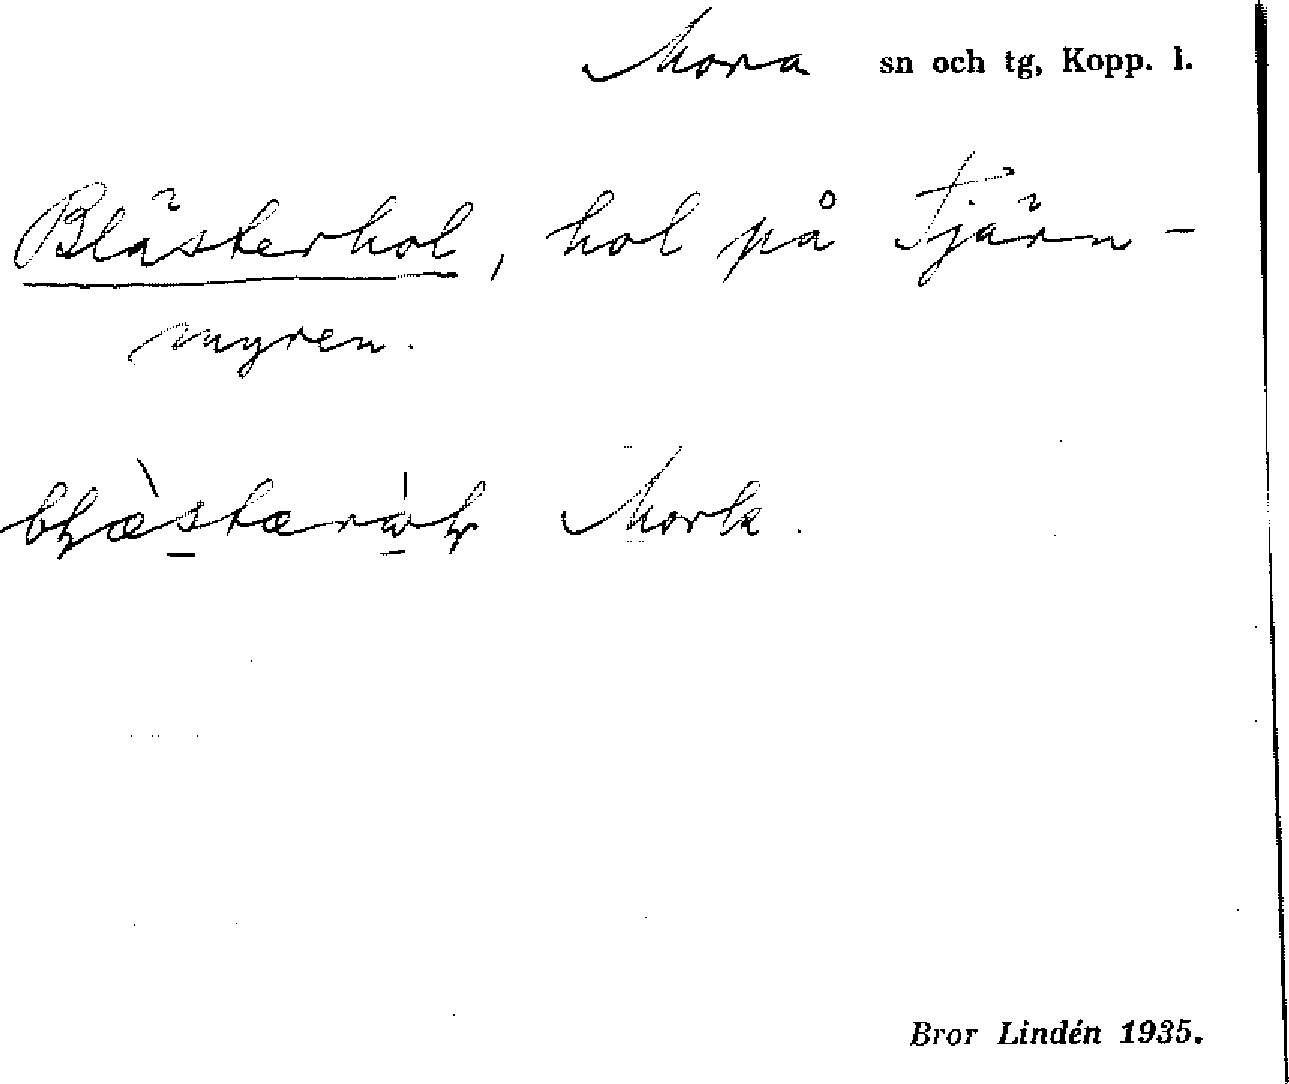 Mora sn och tg, Kopp. l.
Blästerhol, hol på Tjärn-
myren.
Mork.
Bror Lindén 1935.